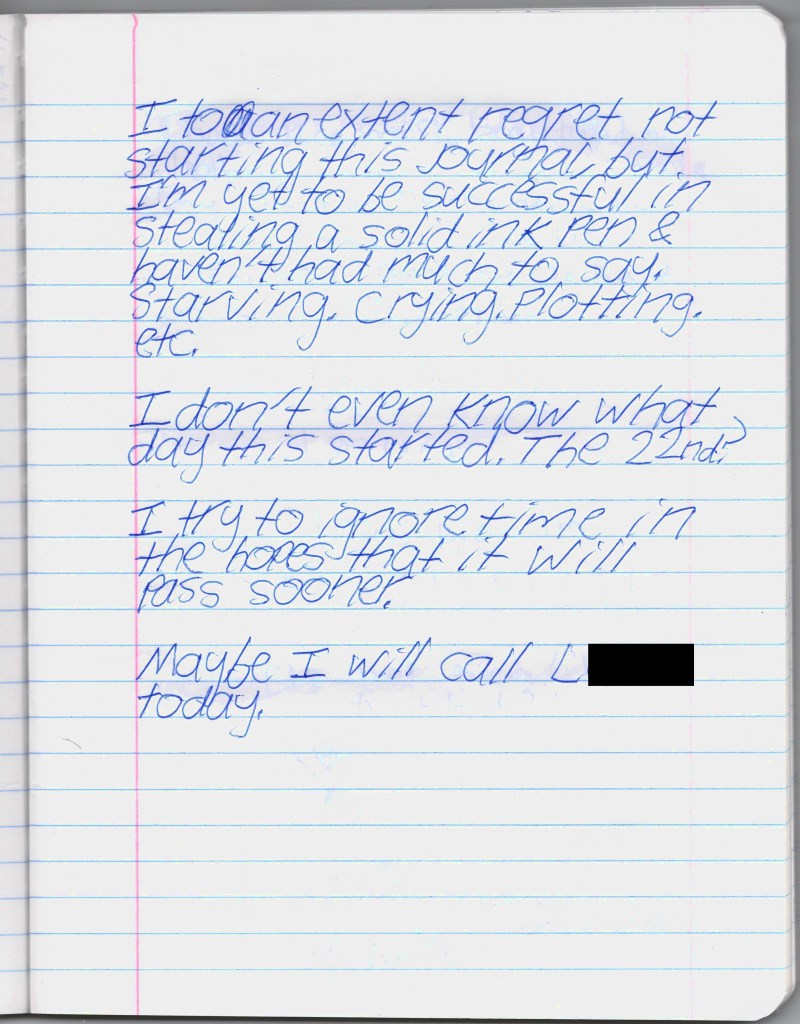 I to an extent regret not
starting this journal, but
I'm yet to be successful in
stealing a solid ink pen &
haven't had much to say.
Starving. Crying. Plotting.
etc.
I don't even know what
day this started. The 22nd?
I try to ignore time in
the hopes that it will
pass sooner.
Maybe I will call L
today.